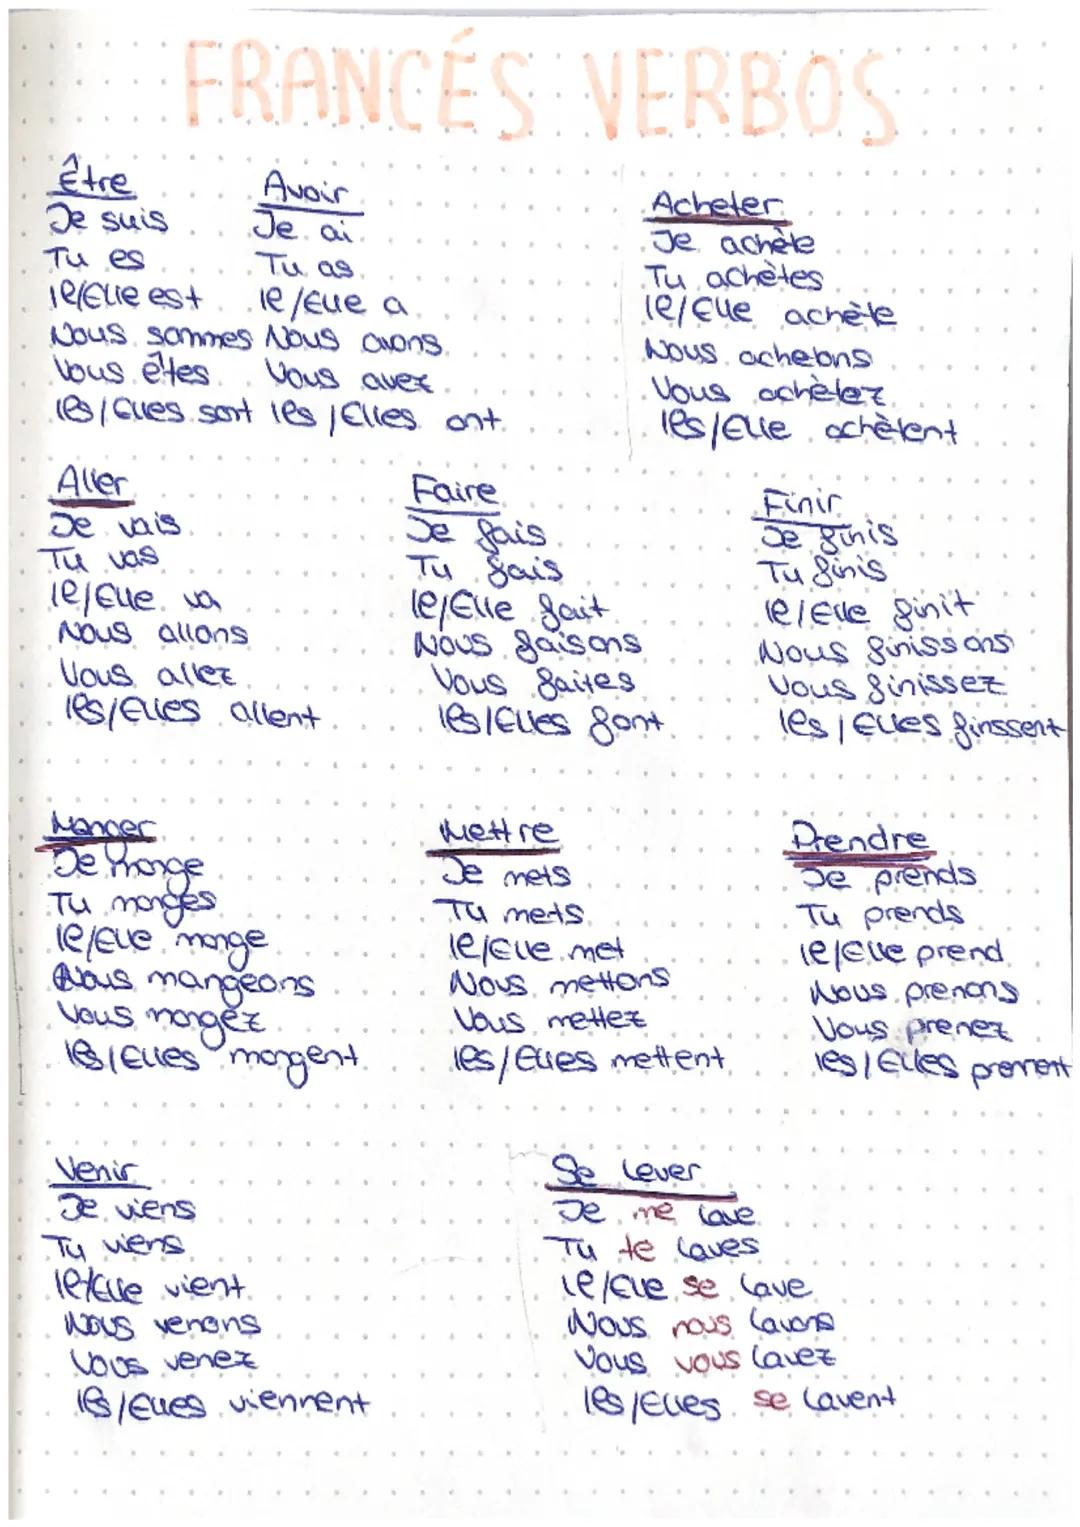 FRANCÉS VERBOS
Être
Je suis
Tu es
Il/Elle est
Nous sommes
Vous êtes
Ils/Elles sont
Avoir
Je ai
Tu as
Il/Elle a
Nous avons
Vous avez
Ils/Elles ont
Acheter
Je achète
Tu achètes
Il/Elle achète
Nous achetons
Vous achètez
Ils/Elle achètent
Aller
Je vais
Tu vas
Il/Elle va
Nous allons
Vous allez
Ils/Elles allent
Faire
Je fais
Tu fais
Il/Elle fait
Nous faisons
Vous faites
Ils/Elles font
Finir
Je finis
Tu finis
Il/Elle finit
Nous finissons
Vous finissez
Ils/Elles finssent
Manger
Je mange
Tu manges
Il/Elle mange
Nous mangeons
Vous mangez
Ils/Elles mangent
Mettre
Je mets
Tu mets
Il/Elle met
Nous mettons
Vous mettez
Ils/Elles mettent
Prendre
Je prends
Tu prends
Il/Elle prend
Nous prenons
Vous prenez
Ils/Elles prennent
Venir
Je viens
Tu viens
Il/Elle vient
Nous venons
Vous venez
Ils/Elles viennent
Se lever
Je me lave
Tu te laves
Il/Elle se lave
Nous nous lavons
Vous vous lavez
Ils/Elles se lavent